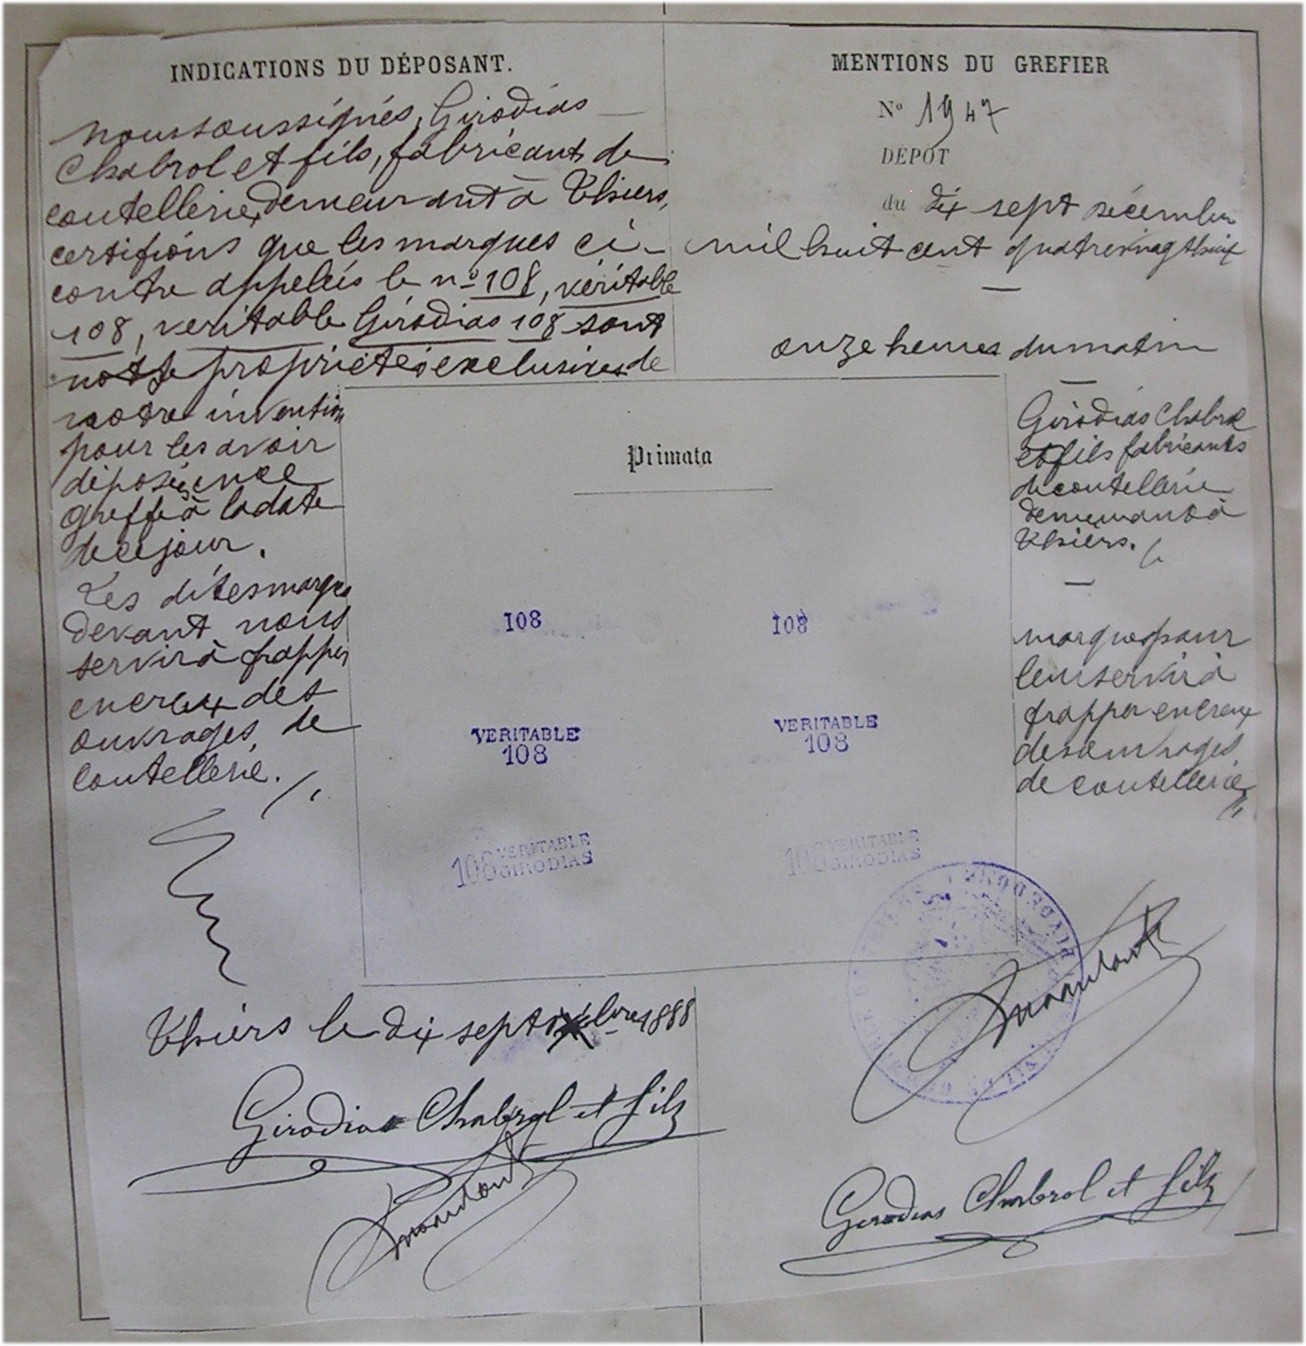 INDICATIONS DU DÉPOSANT.
nous soussignés, Girodias
Chabrol et fils, fabricants de
coutellerie, demeurant à Thiers,
certifions que les marques ci-
contre appelées le nº 108, véritable
108, veritable Girodias 108 sont
notre propriété exclusive, de
notre invention
pour les avoir
déposées
greffe à la date
de ce jour.
Les dites marques
devant nous
servir à frapper
en creux des
ouvrages de
coutellerie.
MENTIONS DU GREFIER
Nº 1947
DÉPOT
du dix sept décembre
mil huit cent quatre vingt huit
onze heures du matin
Girodias Chabrol
et fils fabricants
de coutellerie
demeurant à
Thiers.
marques pour
leur servir à
frapper en creux
des ouvrages
de coutellerie
Primata
108 108
VERITABLE VERITABLE
108 108
108 VERITABLE GIRODIAS 108 VERITABLE GIRODIAS
Thiers le dix sept xbre 1888
Girodias Chabrol et fils
Girodias Chabrol et fils